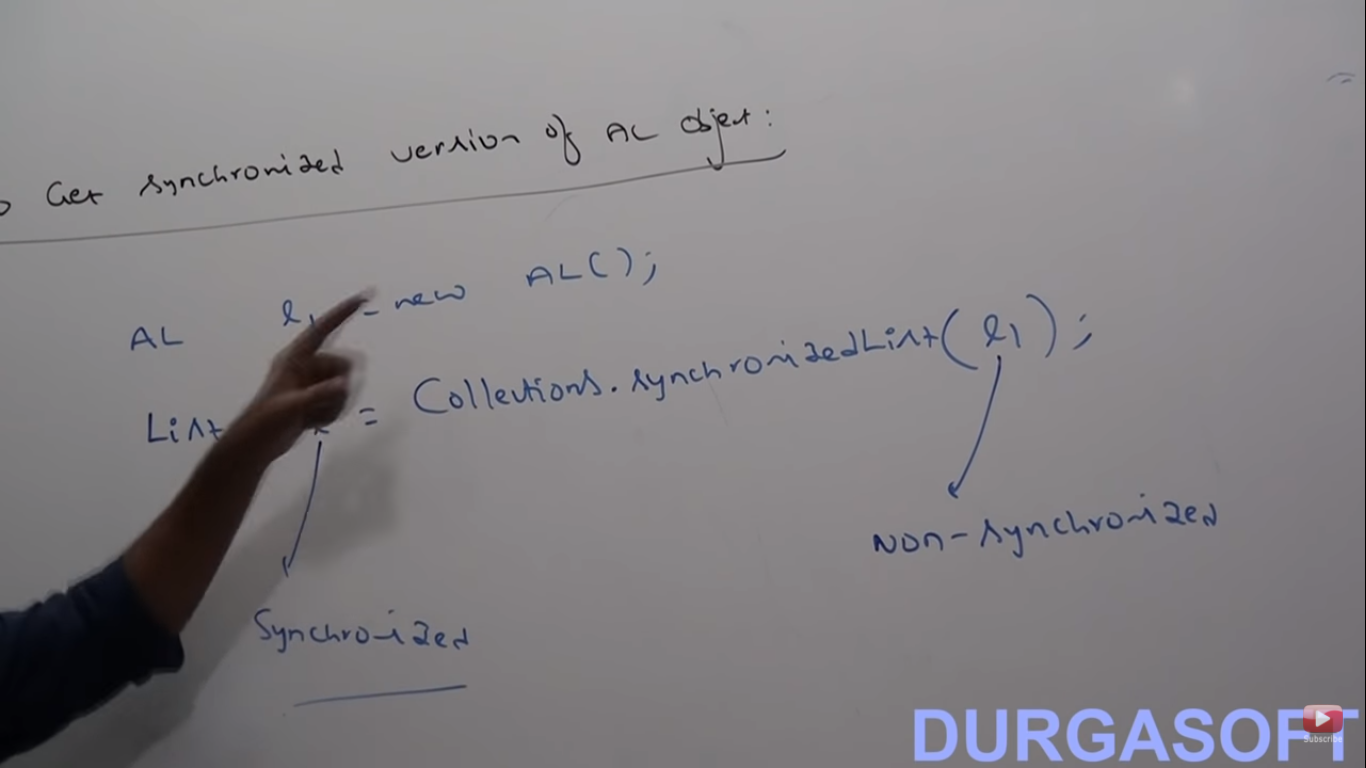 Get synchronized version of AL object:
AL l1 = new AL();
List = Collections.synchronizedList(l1);
Non-synchronized
Synchronized
DURGASOFT
Subscribe